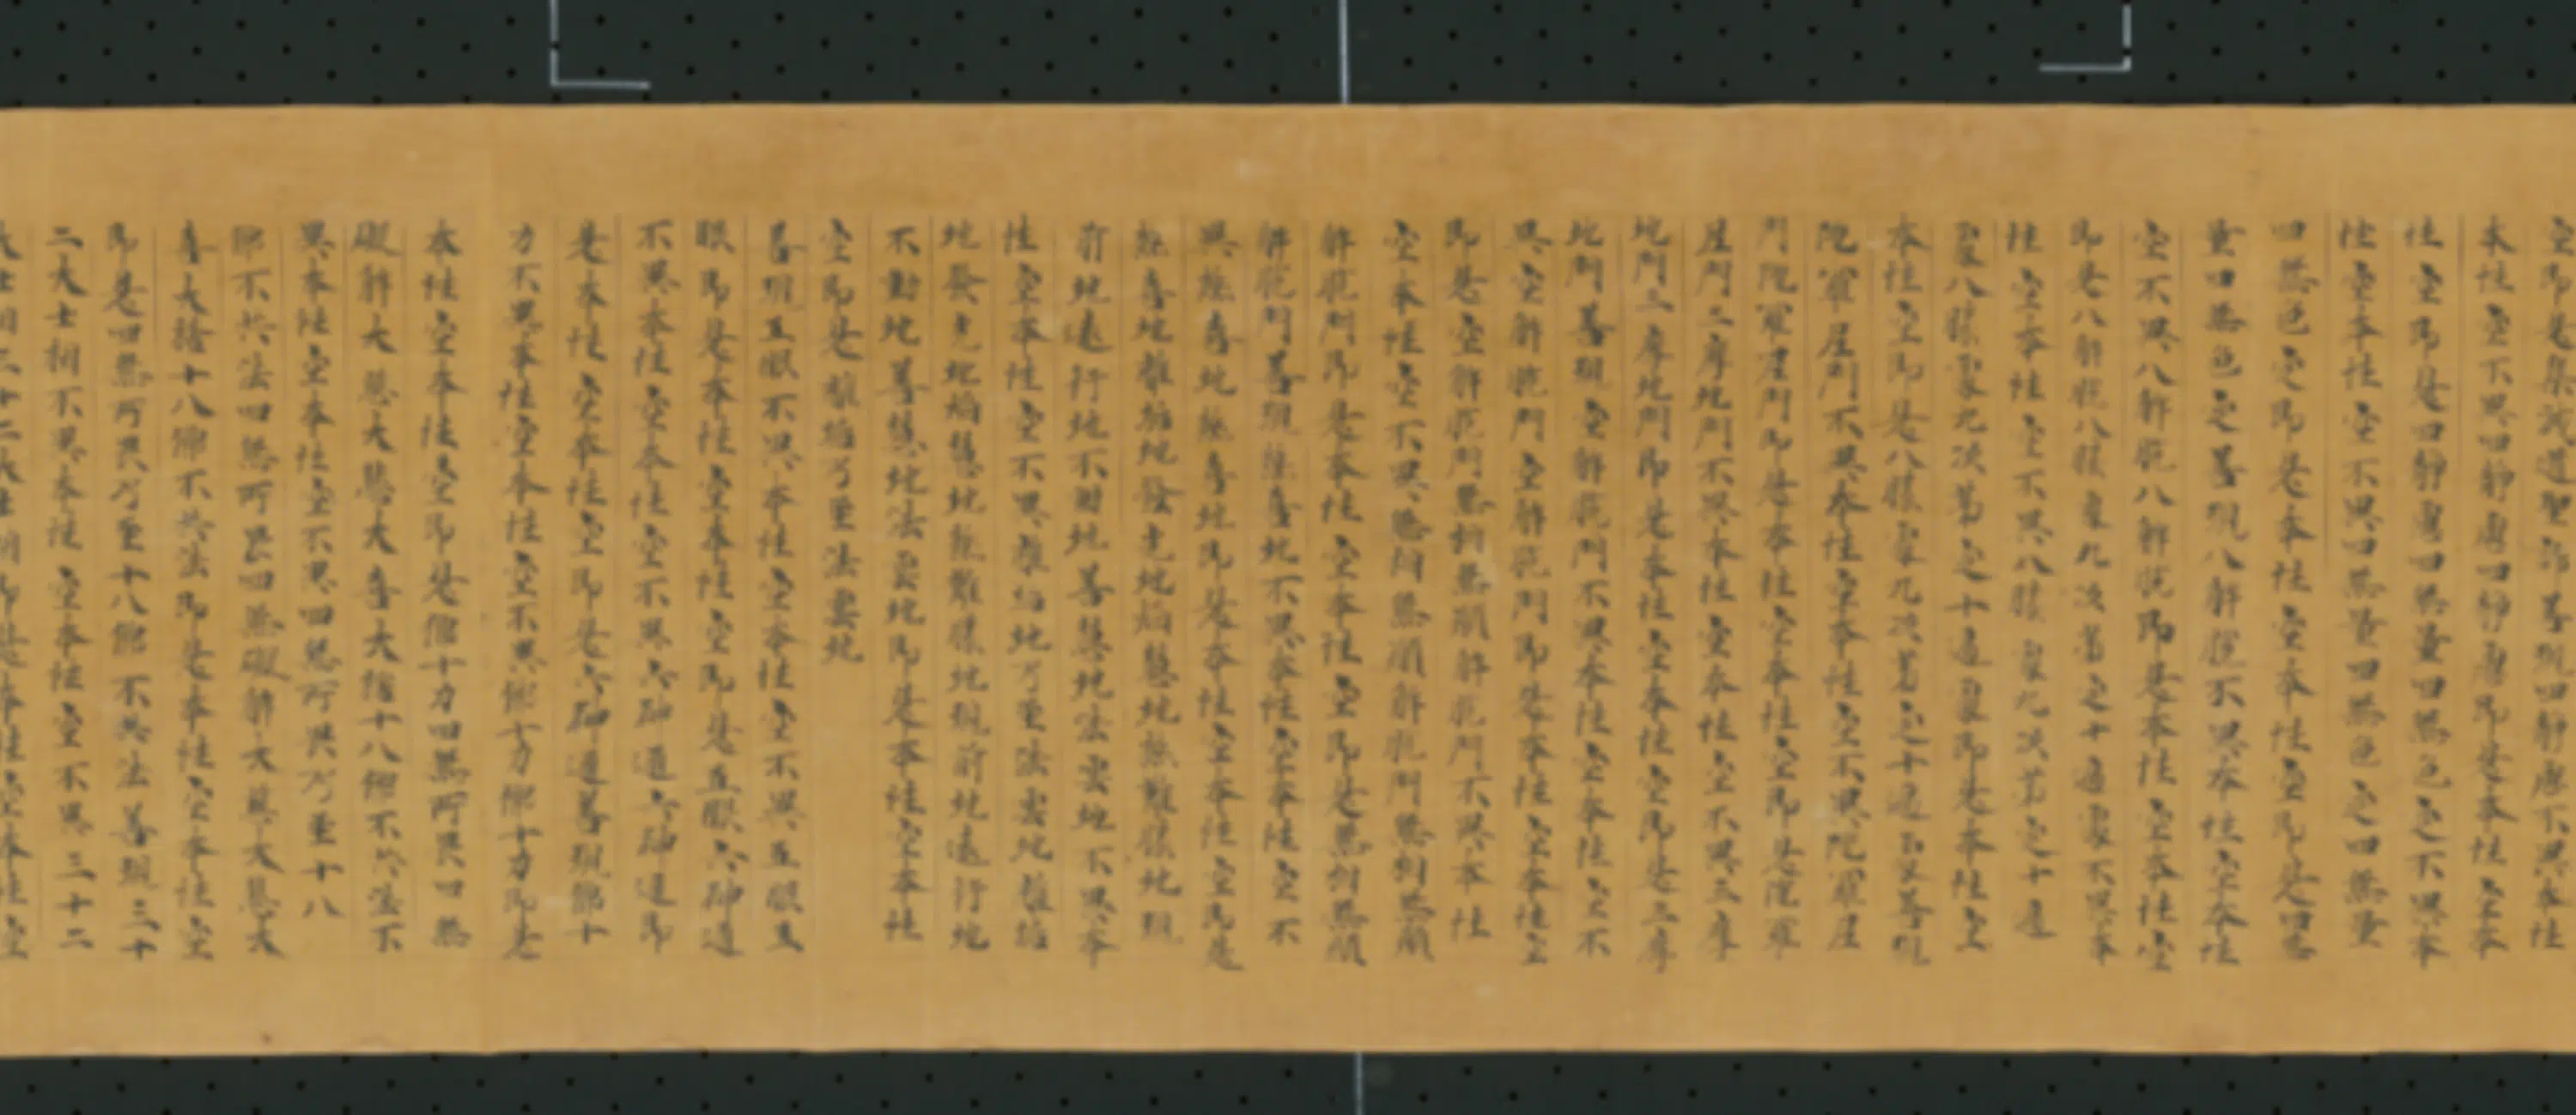 空即是集滅道聖諦善現四靜慮不異本性
本性空不異四靜慮四靜慮即是本性空本
性空即是四靜慮四無量四無色定不異本
性空本性空不異四無量四無色定四無量
四無色定即是本性空本性空即是四無
量四無色定善現八解脫不異本性空本性
空不異八解脫八解脫即是本性空本性空
即是八解脫八勝處九次第定十遍處不異本
性空本性空不異八勝處九次第定十遍
處八勝處九次第定十遍處即是本性空
本性空即是八勝處九次第定十遍處善現
陀羅尼門不異本性空本性空不異陀羅尼
門陀羅尼門即是本性空本性空即是陀羅
尼門三摩地門不異本性空本性空不異三摩
地門三摩地門即是本性空本性空即是三摩
地門善現空解脫門不異本性空本性空不
異空解脫門空解脫門即是本性空本性空
即是空解脫門無相無願解脫門不異本性
空本性空不異無相無願解脫門無相無願
解脫門即是本性空本性空即是無相無願
解脫門善現極喜地不異本性空本性空不
異極喜地極喜地即是本性空本性空即是
極喜地離垢地發光地焰慧地極難勝地現
前地遠行地不動地善慧地法雲地不異本
性空本性空不異離垢地乃至法雲地離垢
地發光地焰慧地極難勝地現前地遠行地
不動地善慧地法雲地即是本性空本性
空即是離垢乃至法雲地
善現五眼不異本性空本性空不異五眼五
眼即是本性空本性空即是五眼六神通
不異本性空本性空不異六神通六神通即
是本性空本性空即是六神通善現佛十
力不異本性空本性空不異佛十力佛十力即是
本性空本性空即是佛十力四無所畏四無
礙解大慈大悲大喜大捨十八佛不共法不
異本性空本性空不異四無所畏乃至十八
佛不共法四無所畏四無礙解大慈大悲大
喜大捨十八佛不共法即是本性空本性空
即是四無所畏乃至十八佛不共法善現三十
二大士相不異本性空本性空不異三十二
大士相三十二大士相即是本性空本性空